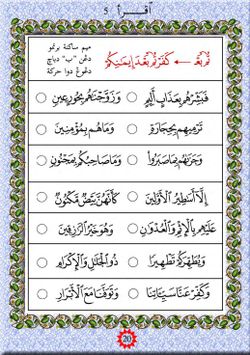 أقـــرأ 5
نُمْ بَعْـ ← كَفَرْتُمْ بَعْدَ إِيمَٰنِكُمْ
ميم ساكنة برتمو
دڠن "ب" دباچ
دڠوڠ دوا حركة
فَبَشِّرْهُم بِعَذَابٍ أَلِيمٍ ○ وَزَوَّجْنَٰهُم بِحُورٍ عِينٍ ○
تَرْمِيهِم بِحِجَارَةٍ ○ وَمَا هُم بِمُؤْمِنِينَ ○
وَجَزَىٰهُم بِمَا صَبَرُوا۟ ○ وَمَا صَاحِبُكُم بِمَجْنُونٍ ○
إِلَّآ أَسَٰطِيرُ ٱلْأَوَّلِينَ ○ كَأَنَّهُنَّ بَيْضٌ مَّكْنُونٌ ○
عَلَيْهِم بِٱلْإِثْمِ وَٱلْعُدْوَٰنِ ○ وَهُوَ خَيْرُ ٱلرَّٰزِقِينَ ○
وَيُطَهِّرَكُمْ تَطْهِيرًا ○ ذُو ٱلْجَلَٰلِ وَٱلْإِكْرَامِ ○
وَكَفِّرْ عَنَّا سَيِّـَٔاتِنَا ○ وَتَوَفَّنَا مَعَ ٱلْأَبْرَارِ ○
20